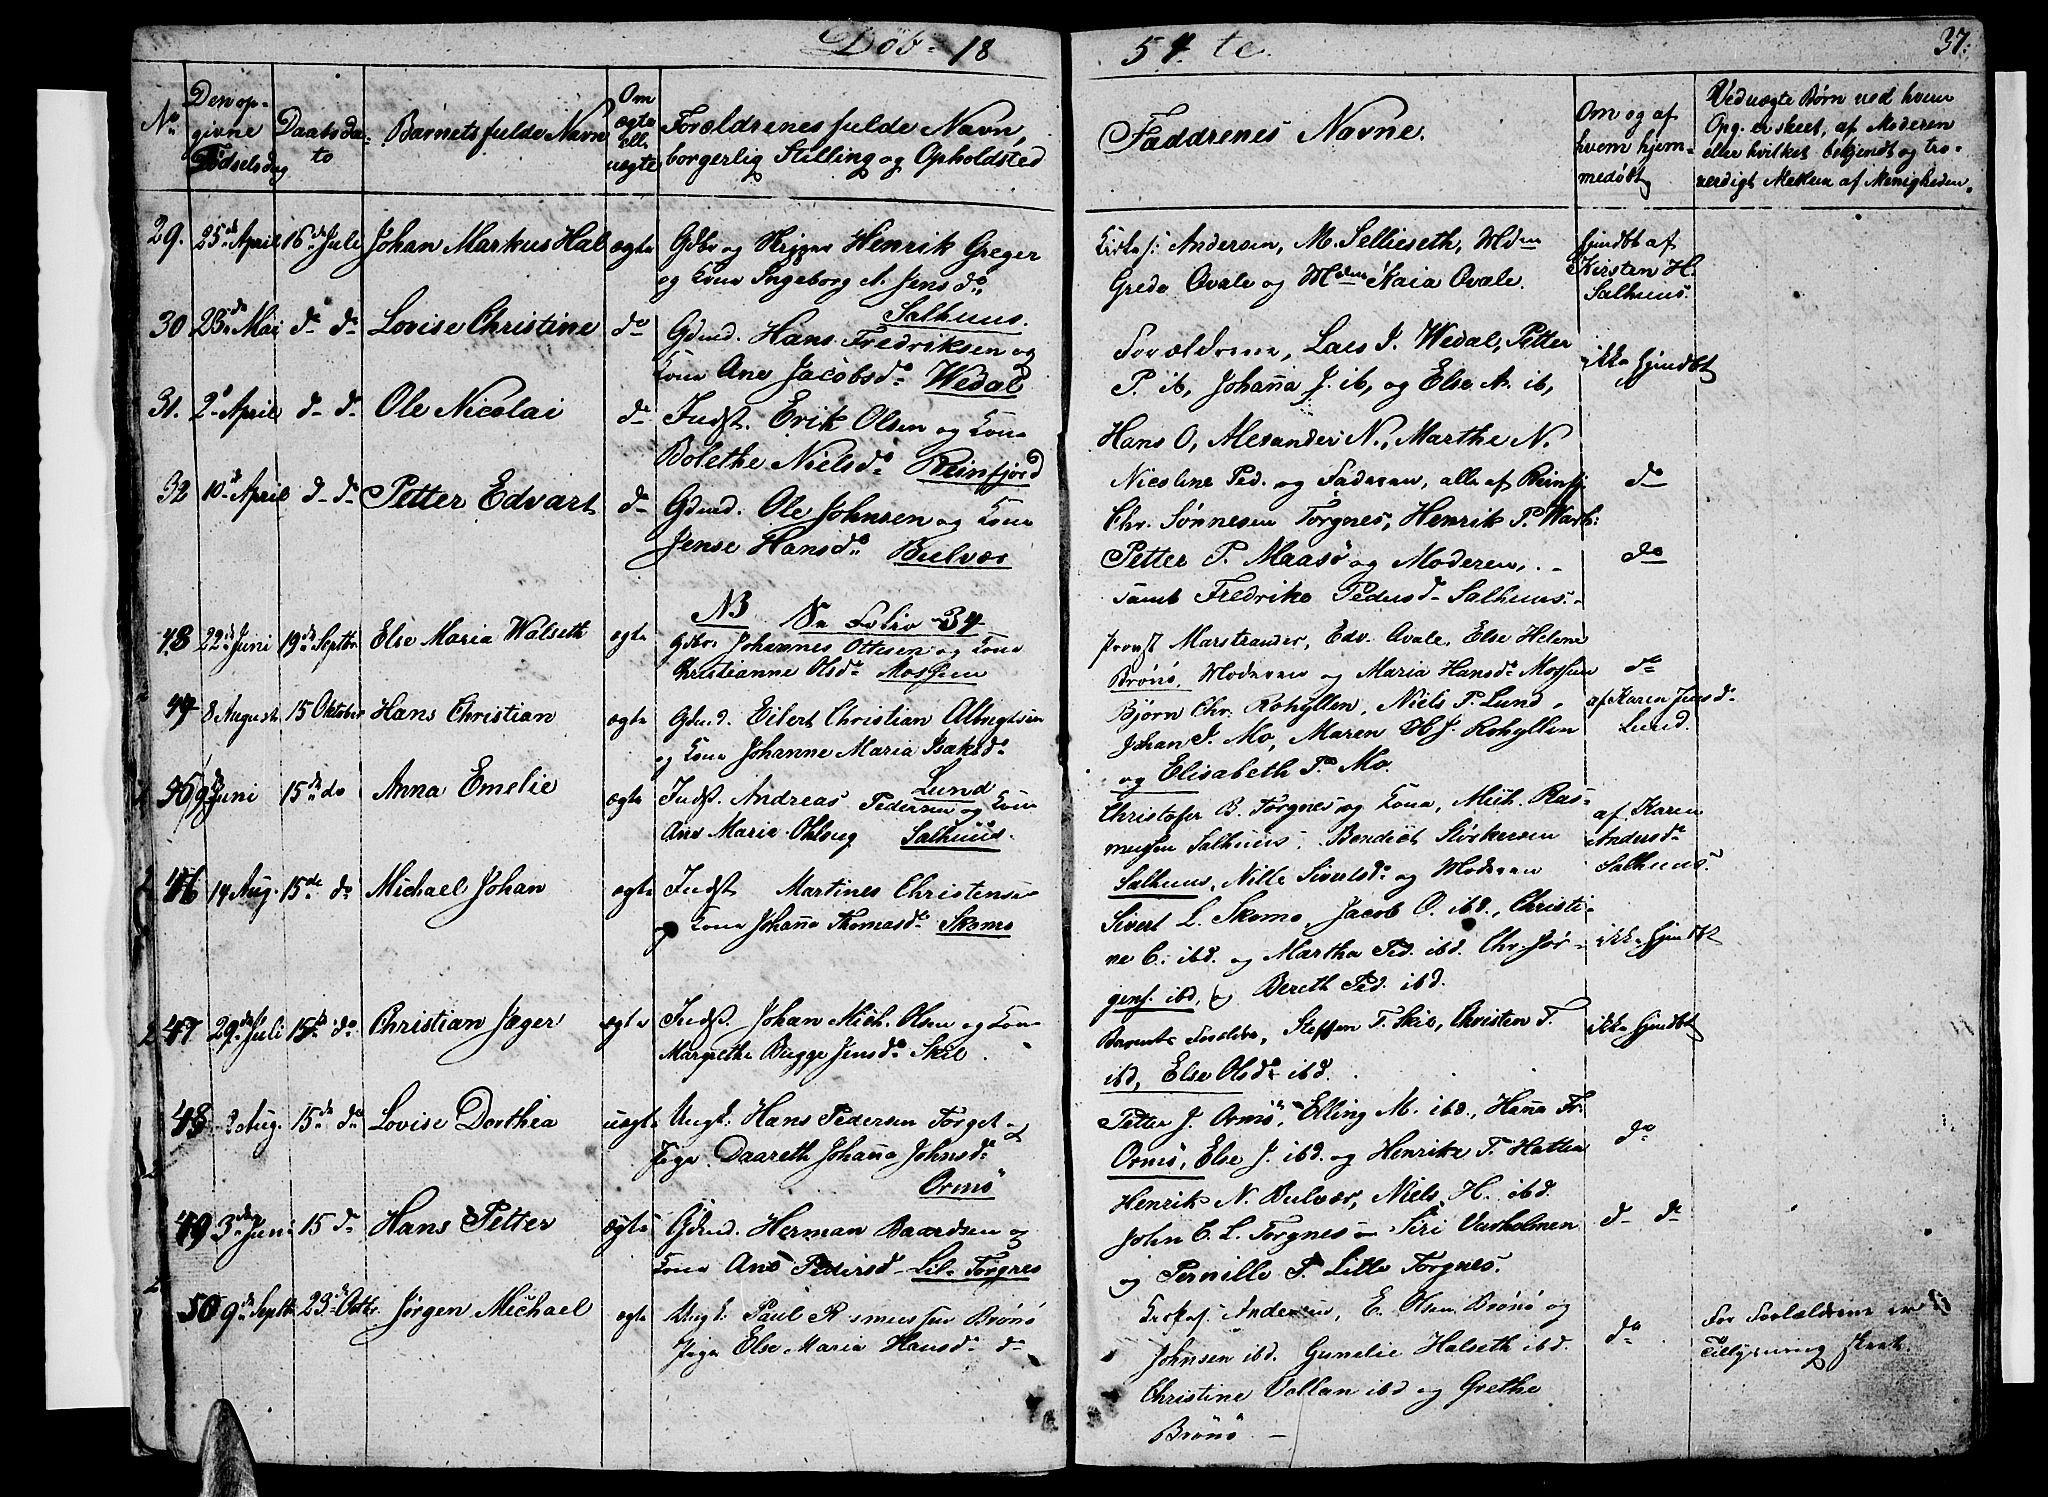 Døb- 18 54 te. 37.
No Den opgivne Fødselsdag Daabsdato Barnets fulde Navn Om ægte Ell. uægte Forældrenes fulde Navn, borgerlig Stilling og Opholdsted Faddrenes Navne. Om og af hvem hjemmedøbt Ved uægte Børn ved hvem Opg. er skeet, af Moderen eller hvilket bekjendt og troværdigt Medlem af Menigheden.
29. 25de April 16de Juli Johan Markus Hal ægte Gdbr og Skipper Henrik Greger
og Kone Ingeborg A. Jensdr
Salhuus.
Andersen, M. Sellieseth, Mdm
Greda Qvale og Mdm Kaia Qvale.
hjemdbt af
Kirsten H.
Salhuus.
30 23de Mai do do Lovise Christine do Gdmd. Hans Fredriksen og
Kone Ane Jacobsdr Wedal
Forældrene, Lars J. Wedal, Petter
P. ib, Johanna J. ib, og Else A. ib,
ikke hjemdbt
31. 2d April do do Ole Nicolai do Indst. Erik Olsen og Kone
Bolethe Nielsdr Reinfjord
Hans O, Alexander N., Marthe N.
Nicoline Ped. og Faderen, alle af Reinfj.
do
32 10d April do do Petter Edvart do Gdmd. Ole Johnsen og Kone
Jense Hansdr Bulvær
Chr. Sønnesen Torgnes, Henrik P.
Petter P. Maasø og Moderen,
samt Fredrike Pedersdr Salhuus.
do
NB Se Folio 34
43 22de Juni 19de Septbr Else Maria Walseth ægte Gdbr Johannes Ottesen og Kone
Christianne Olsdr Mosheim
Provst Marstrander, Edv. Qvale, Else Helene
Brønø, Moderen og Maria Hansdr
do
44 8 August 15 Oktober Hans Christian ægte Gdmd. Eilert Christian Albrigtsen
og Kone Johanne Maria Isaksdr
Lund
Bjørn Chr. Rohyllen, Niels P. Lund,
Johan J. Mo, Maren H. J. Rohyllen
og Elisabeth P. Mo.
af Karen Jensdr
Lund.
9d Juni 15de do Anna Emelie ægte Indst. Andreas Pedersen og Kone
Ane Marie Salhuus.
Christofer B. Torgnes og Kone, Mich. Rasmussen Salhuus, Bendict Størkersen
Salhuus, Nille Sivertsdr og Moderen
af Karen
Andersdr
Salhuus.
46 14 Aug. 15de do Michael Johan ægte Indst Martines Christensen
og Kone Johanna Thomasdr Skomo
Sivert L. Skomo, Jacob O. ibd., Christine C. ibd. og Martha Ped. ibd. Chr. Jørgens. ibd. og Bereth Ped. ibd.
ikke hjemdbt
47 29de Juli 15de do Christian Jæger ægte Indst. Johan Mich. Olsen og Kone
Margrethe Bugge Jensdr Skie
Barnets Forældre, Steffen T. Skie, Christen T.
ibd, Else Olsdr ibd.
ikke hjemdbt
48 2 Aug. 15de do Lovise Dorthea uægte Ungk. Hans Pedersen Torget og
Pige Daareth Johana Johnsdr
Ormø
Petter J. Ormø, Elling M. ibd., Hana Fr.
Ormø, Else J. ibd. og Henrike T. Hatten
do
49 3de Juni 15 do Hans Petter ægte Gdmd. Herman Baardsen og
Kone Ane Pedersd Lil. Torgnes
Henrik N. Bulvær, Niels H. ibd.
John C. L. Torgnes, Siri Varholmen
og Pernille P. Lille Torgnes.
do do
50 9d Septbr 29de Octbr. Jørgen Michael ægte Ungk. Paul Rasmussen Brønø
Pige Else Maria Hansdr do
Andersen, E. Olsen Brønø og
Johnsen ibd. Gunelie Halseth ibd.
Christine Vollan ibd og Grethe
Brønø
do
For Forældrene er
Tillysning skeet.